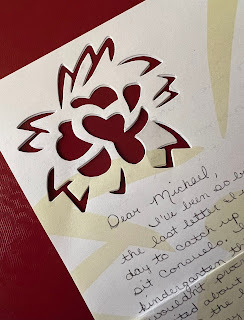 Dear Michael,
I've been so b
the last letter
day to catch up
sit Consuelo.
kindergarten t
wouldn't pro
ted about